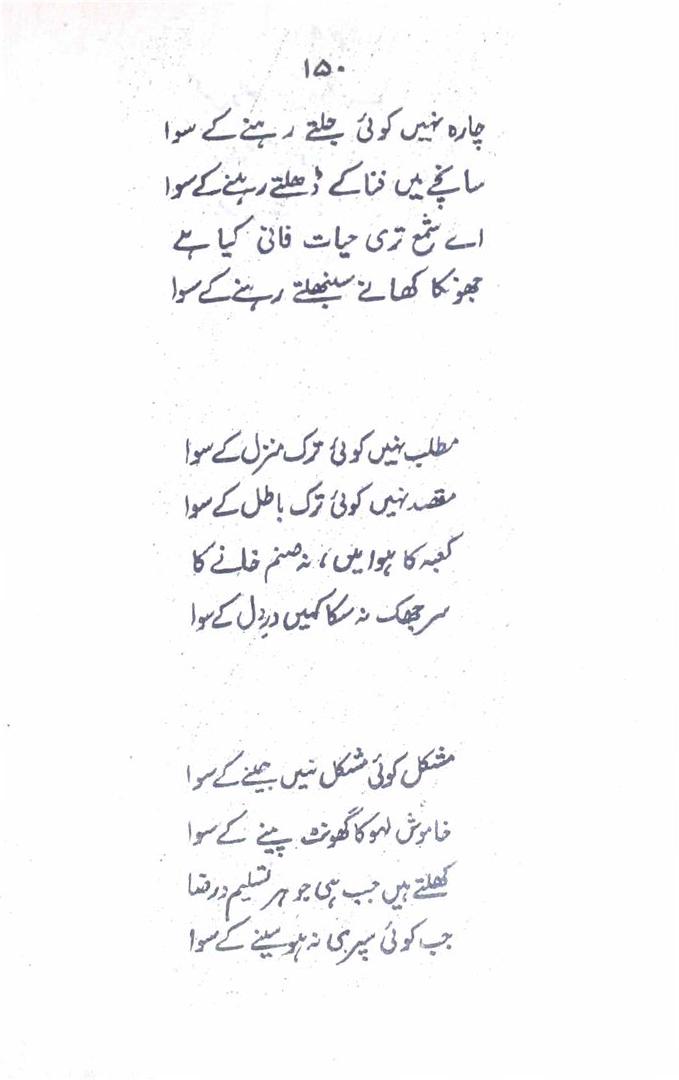 ۱۵۰
چارہ نہیں کوئی جلتے رہنے کے سوا
سانچے میں فنا کے ڈھلتے رہنے کے سوا
اے شمع تری حیات فانی کیا ہے
جھونکا کھانے سنبھلتے رہنے کے سوا
مطلب نہیں کوئی ترک منزل کے سوا
مقصد نہیں کوئی ترک باطل کے سوا
کعبہ کا ہوا میں، نہ صنم خانے کا
سر جھک نہ سکا کہیں درِ دل کے سوا
مشکل کوئی مشکل نہیں جینے کے سوا
خاموش لہو کا گھونٹ پینے کے سوا
کھلتے ہیں جب ہی جوہر تسلیم و رضا
جب کوئی سپر ہی نہ ہو سینے کے سوا